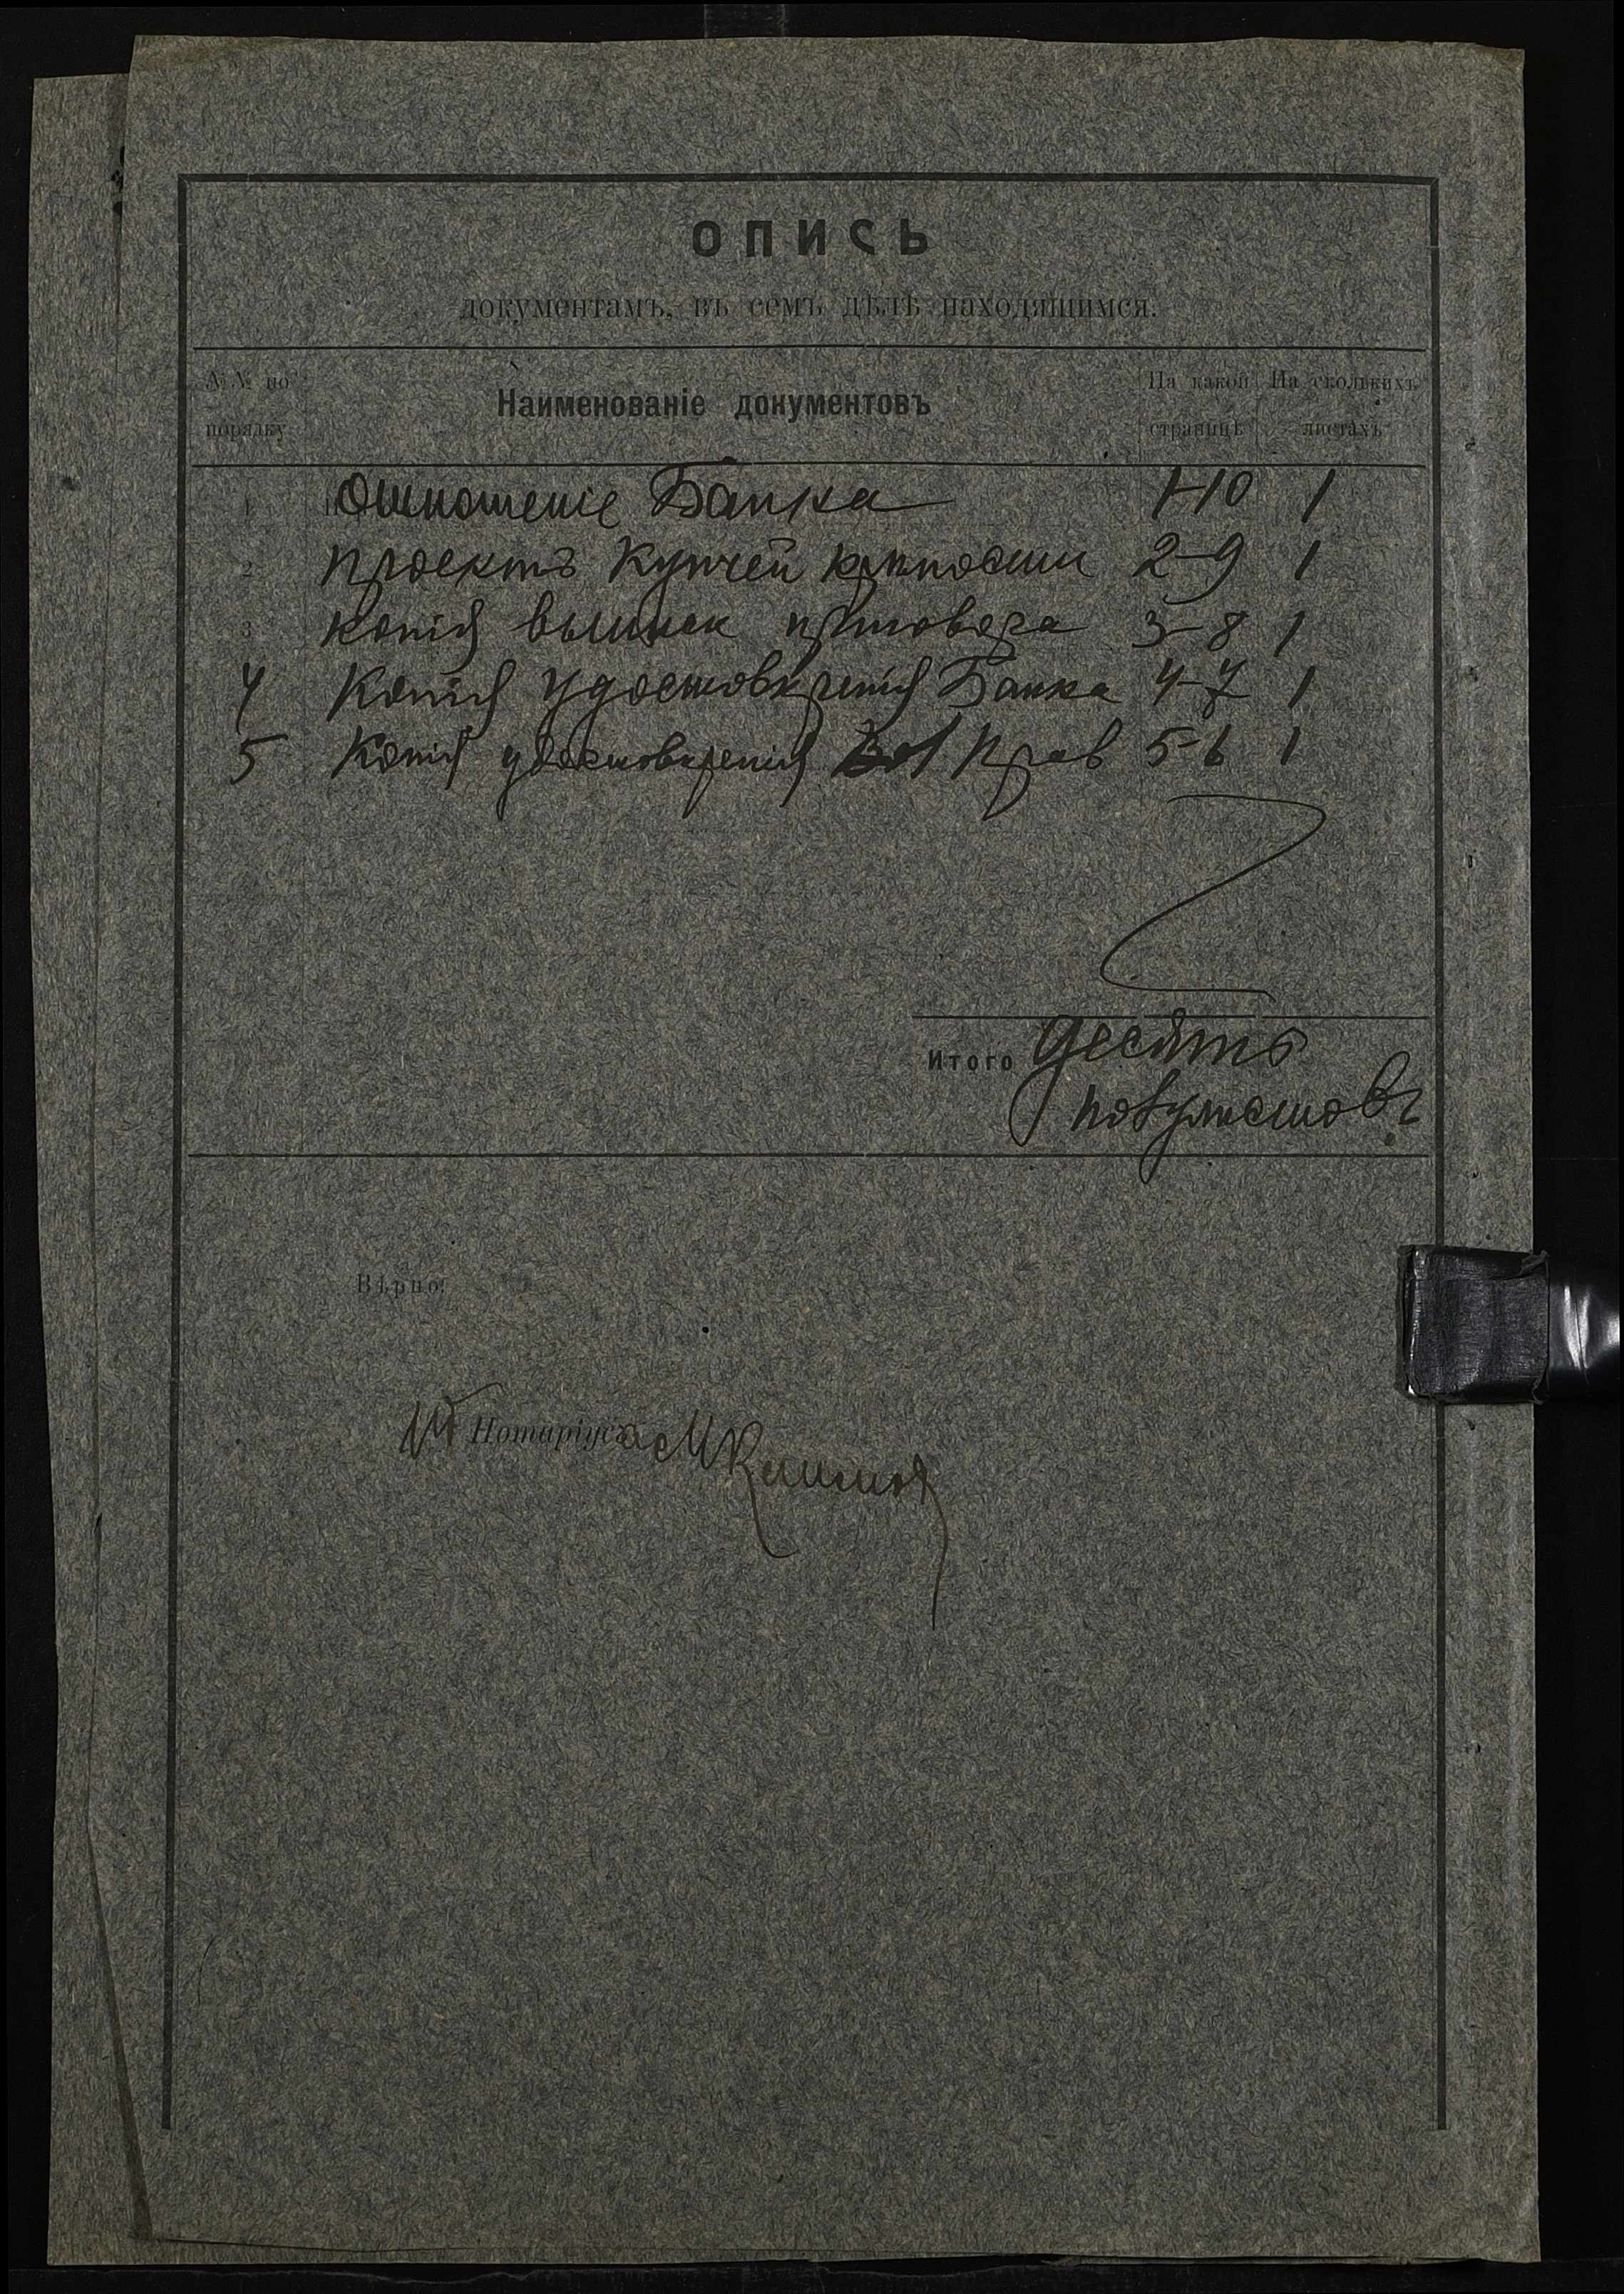 ОПИСЬ
документамъ, въ семъ дѣлѣ находящимся.
№№ по порядку Наименованіе документовъ На какой страницѣ На сколькихъ листахъ
1 Отношеніе Банка 1-10 1
2 Проектъ Купчей крѣпости 2-9 1
3 Копія выписк приговора 3-8 1
4 Копія удостовѣренія Банка 4-7 1
5 Копія удостовѣренія Вол Прав 5-6 1
Итого Десять
полулистовъ
Вѣрно:
Нотаріуса